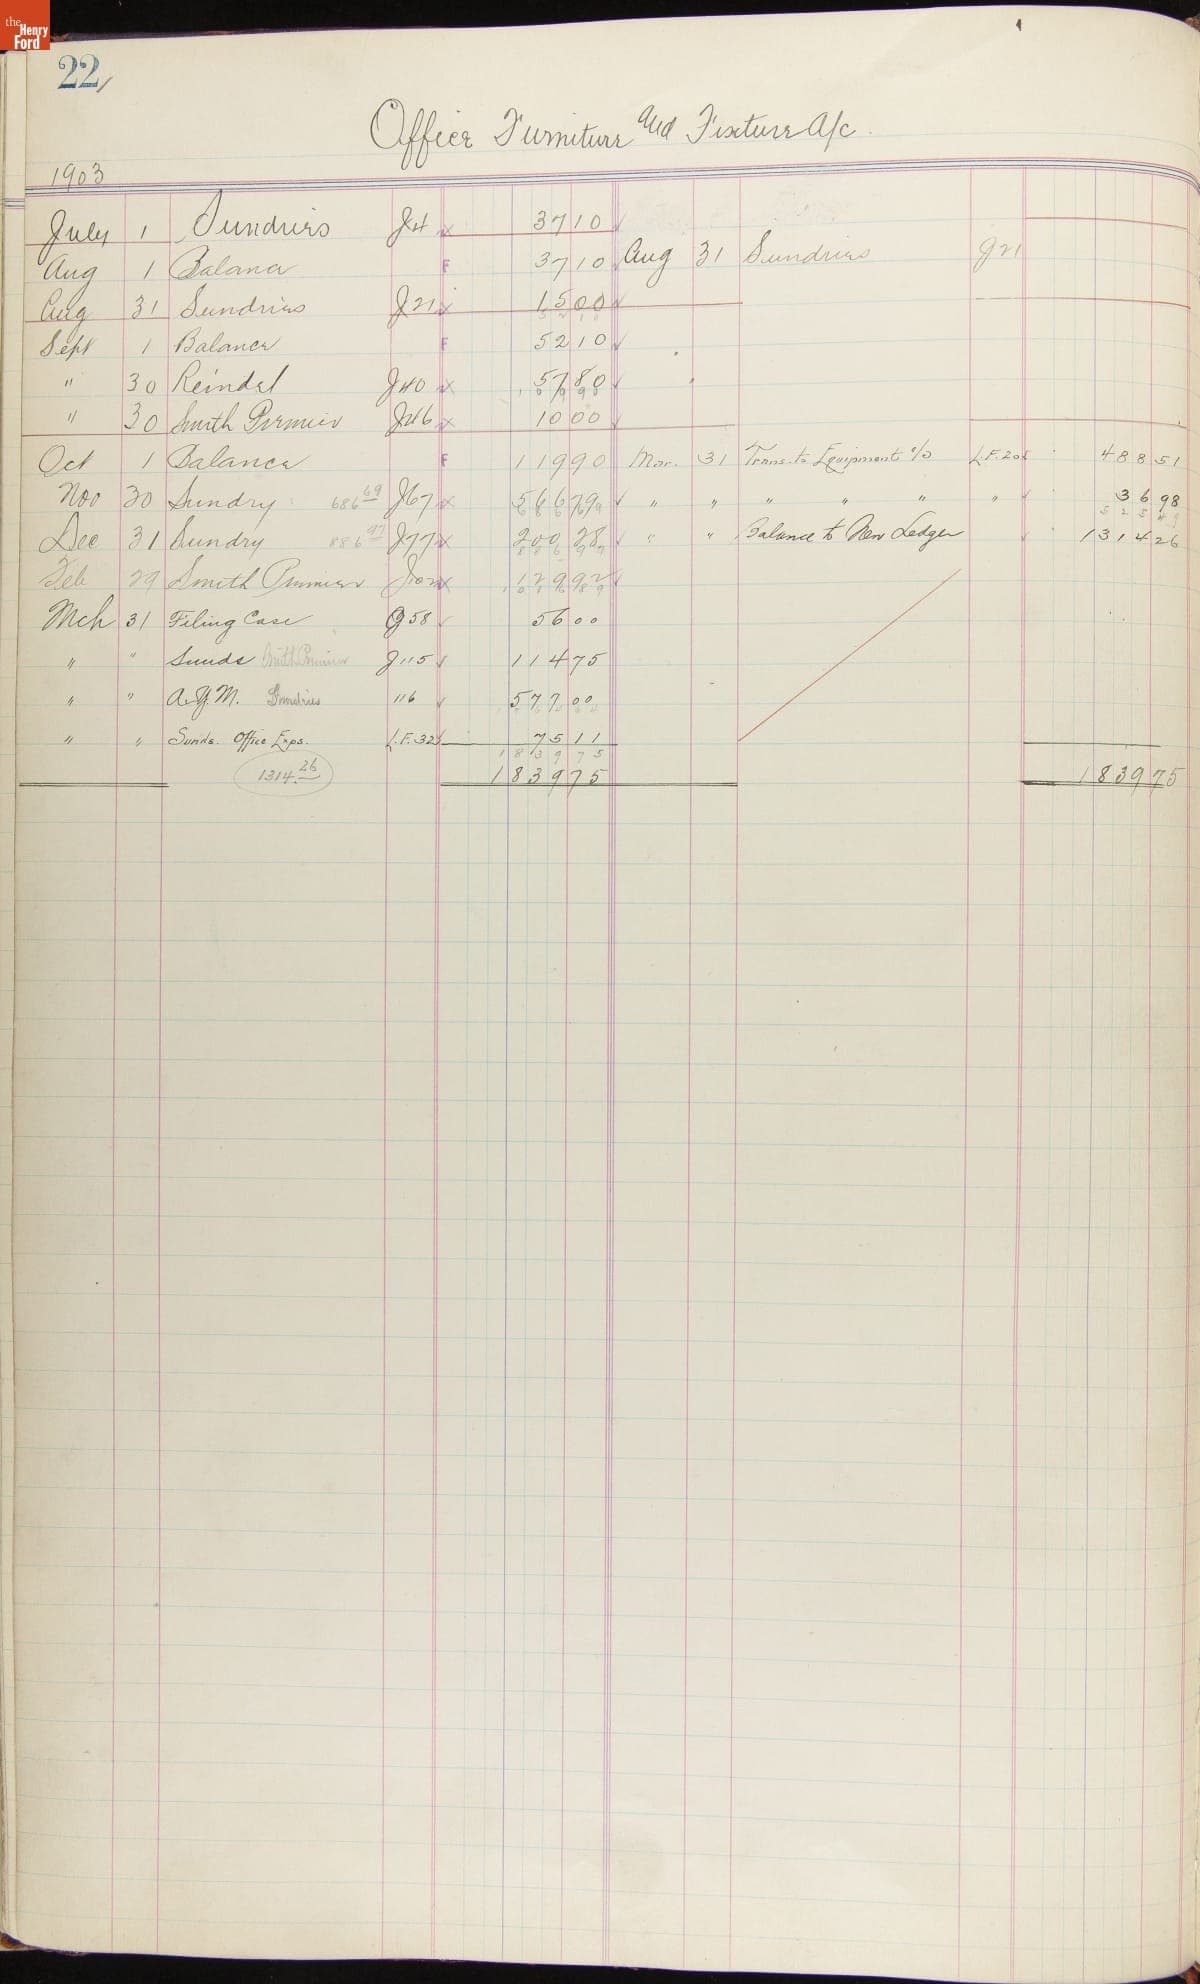 the Henry Ford
22
Office Furniture and Fixture A/c
1903
July 1 Sundries J4 37 10
Aug 1 Balance F 37 10 Aug 31 Sundries J21
Aug 31 Sundries J21 15 00
Sept 1 Balance F 52 10
" 30 Reindel J40 57 80
" 30 Smith Premier J46 10 00
Oct 1 Balance F 119 90 Mar. 31 Trans. to Equipment a/c L.F. 205 488 51
Nov 30 Sundry 686 69 J67 566 79 " " " " " " 36 98
525 49
Dec 31 Sundry 886 97 J77 200 28 " " Balance to New Ledger 1314 26
Feb 29 Smith Premier 129 92
Mch 31 Filing Case J58 56 00
" " Sunds Smith Premier J115 114 75
" " A.Y.M. Sundries 116 577 00
" " Sunds. Office Exps. L.F. 32 75 11
1839 75
1314.26 1839 75 1839 75